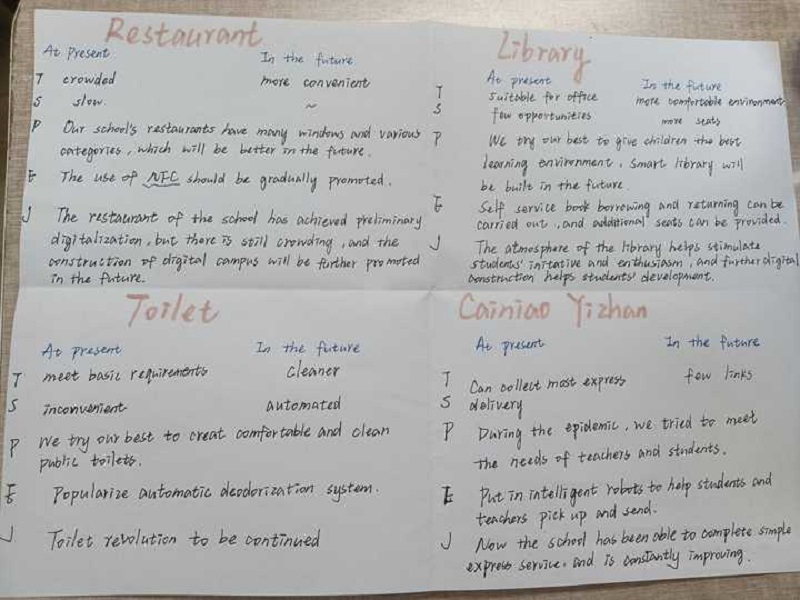 Restaurant
At present In the future
T crowded more convenient
S slow. ~
P Our school's restaurants have many windows and various
categories, which will be better in the future.
E The use of NFC should be gradually promoted.
J The restaurant of the school has achieved preliminary
digitalization, but there is still crowding, and the
construction of digital campus will be further promoted
in the future.
Library
At present In the future
T Suitable for office more comfortable environment
S few opportunities more seats
P We try our best to give children the best
learning environment, smart library will
be built in the future.
E Self service book borrowing and returning can be
carried out, and additional seats can be provided.
J The atmosphere of the library helps stimulate
students' initative and enthusiasm, and further digital
construction helps students' development.
Toilet
At present In the future
T meet basic requirements cleaner
S inconvenient automated
P We try our best to creat comfortable and clean
public toilets.
E Popularize automatic deodorization system.
J Toilet revolution to be continued
Cainiao Yizhan
At present In the future
T Can collect most express few links
S delivery
P During the epidemic, we tried to meet
the needs of teachers and students.
E Put in intelligent robots to help students and
teachers pick up and send.
J Now the school has been able to complete simple
express service, and is constantly improving.